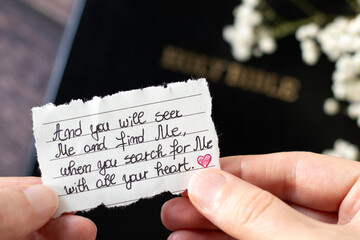 HOLY BIBLE
And you will seek
Me and find Me,
when you search for Me
with all your heart.